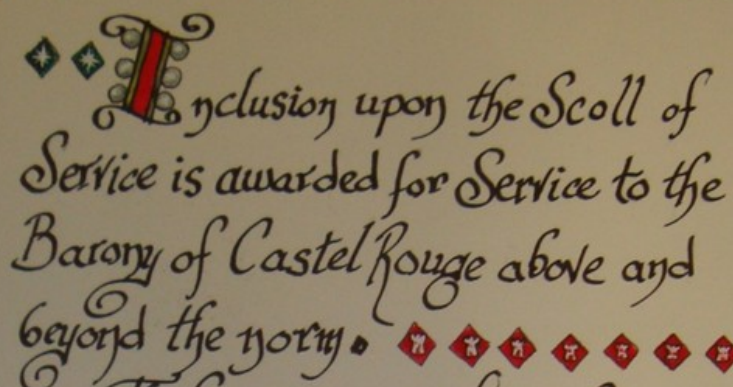 Inclusion upon the Scoll of
Service is awarded for Service to the
Barony of Castel Rouge above and
beyond the norm.